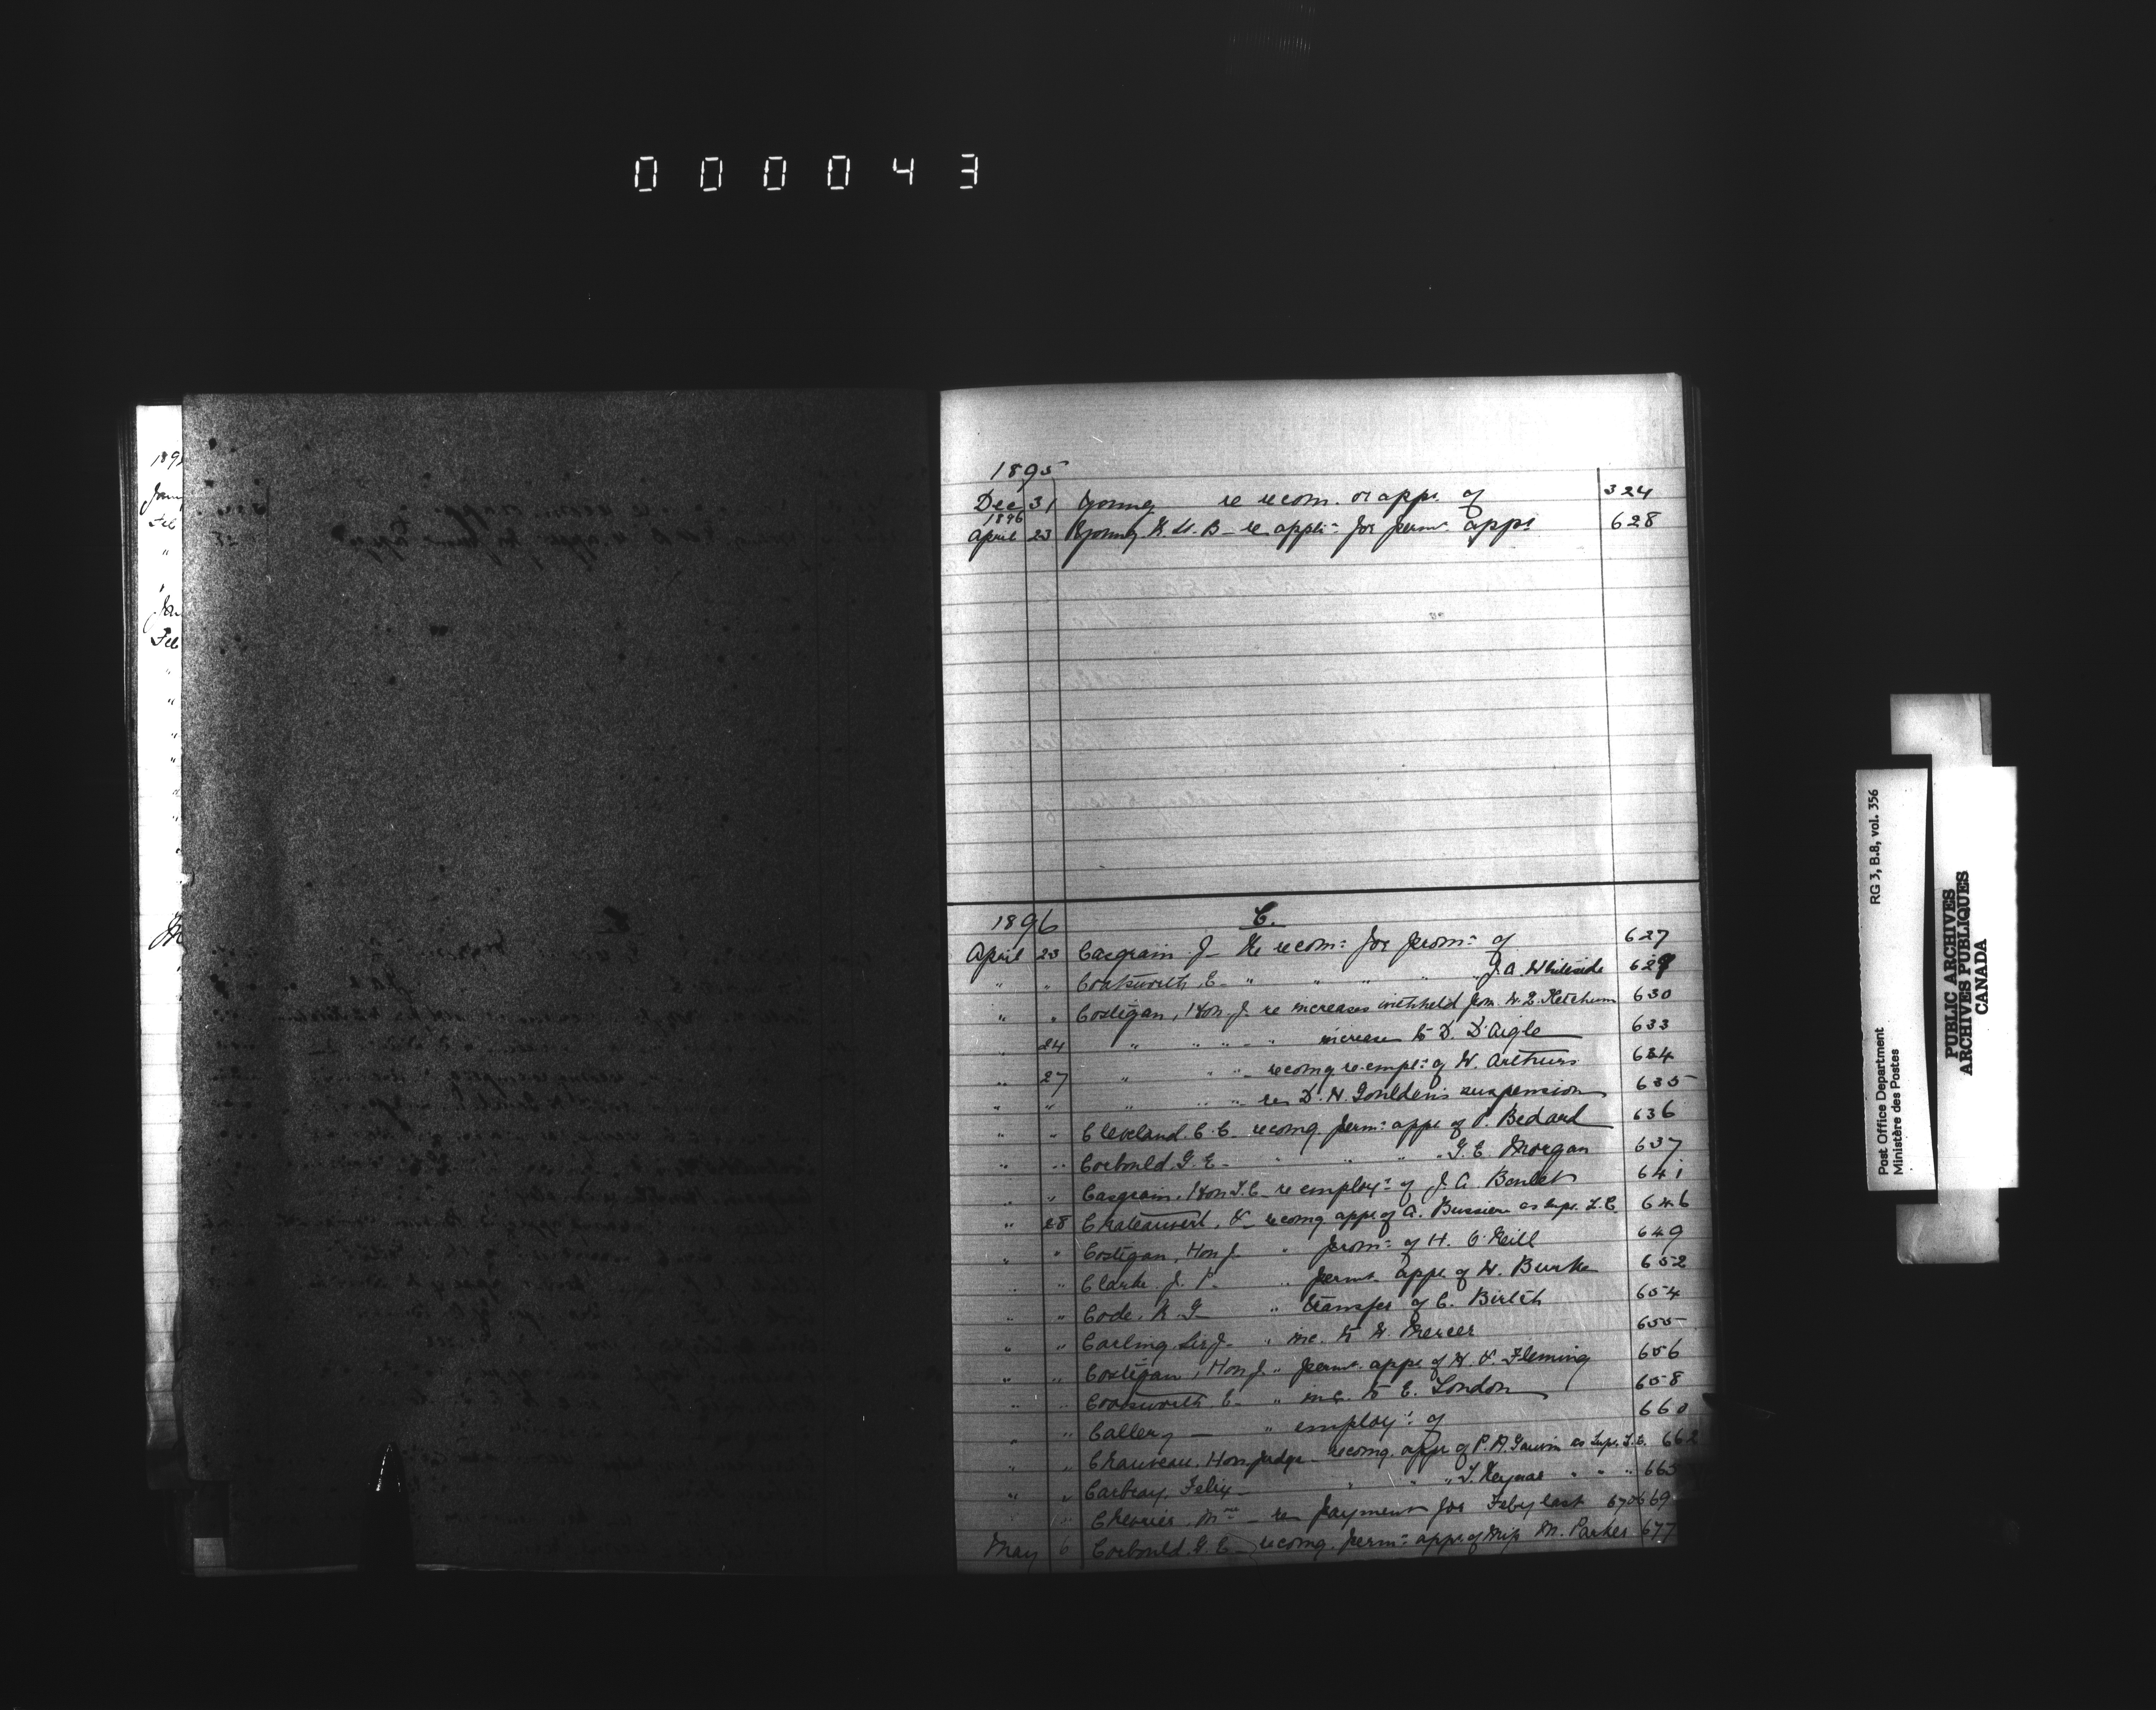 000043
1895
Dec 31 Young re recom. or appt. of 324
1896
April 23 Young, H. B - re appli: for permt appt 628
1896 C.
April 23 Casgrain J - re recom: for prom: of 627
" " Coatsworth, E - " " " " J. A. Whiteside 629
" " Costigan, Hon. J. re increases withheld from W. Z. Ketchum 630
" 24 " " " - " increase to D. D'Aigle 633
" 27 " " " - recomg re-empt: of W. Arthurs 634
" " " " " - re D. N. Gouldens suspension 635
" " Cleveland, C. C. recomg. perm: appt. of P. Bedard 636
" " Corbould, G. E - " " " G. C. Morgan 637
" " Casgrain, Hon T. C - re employ: of J. A. Boulet 641
" 28 Chateauvert, V - recomg appt of A. Bussiere as Supr. L. C. 646
" " Costigan, Hon J - " prom: of H. O'Neill 649
" " Clarke, J. P. " permt. appt. of W. Burke 652
" " Code, R. G - " transfer of C. Birtch 654
" " Carling, Sir J - " inc. to W. Mercer 655
" " Costigan, Hon J. " permt. appt. of H. V. Fleming 656
" " Coatsworth, E - " inc. to E. London 658
" " Callery - " employ: of 660
" " Chauveau, Hon Judge - recomg. appt of P. A. as Supr. L. C. 662
" " Carbray, Felix - " " " T. " " " 663
" " Chevrier, Mme - re payment for Feby last 670 669
May 6 Corbould, G. E - recomg. perm: appt. of Miss M. Parker 677
189
Jan
Feb
"
"
Jan
Feb
RG 3, B.8, vol. 356
Post Office Department
Ministère des Postes
PUBLIC ARCHIVES
ARCHIVES PUBLIQUES
CANADA